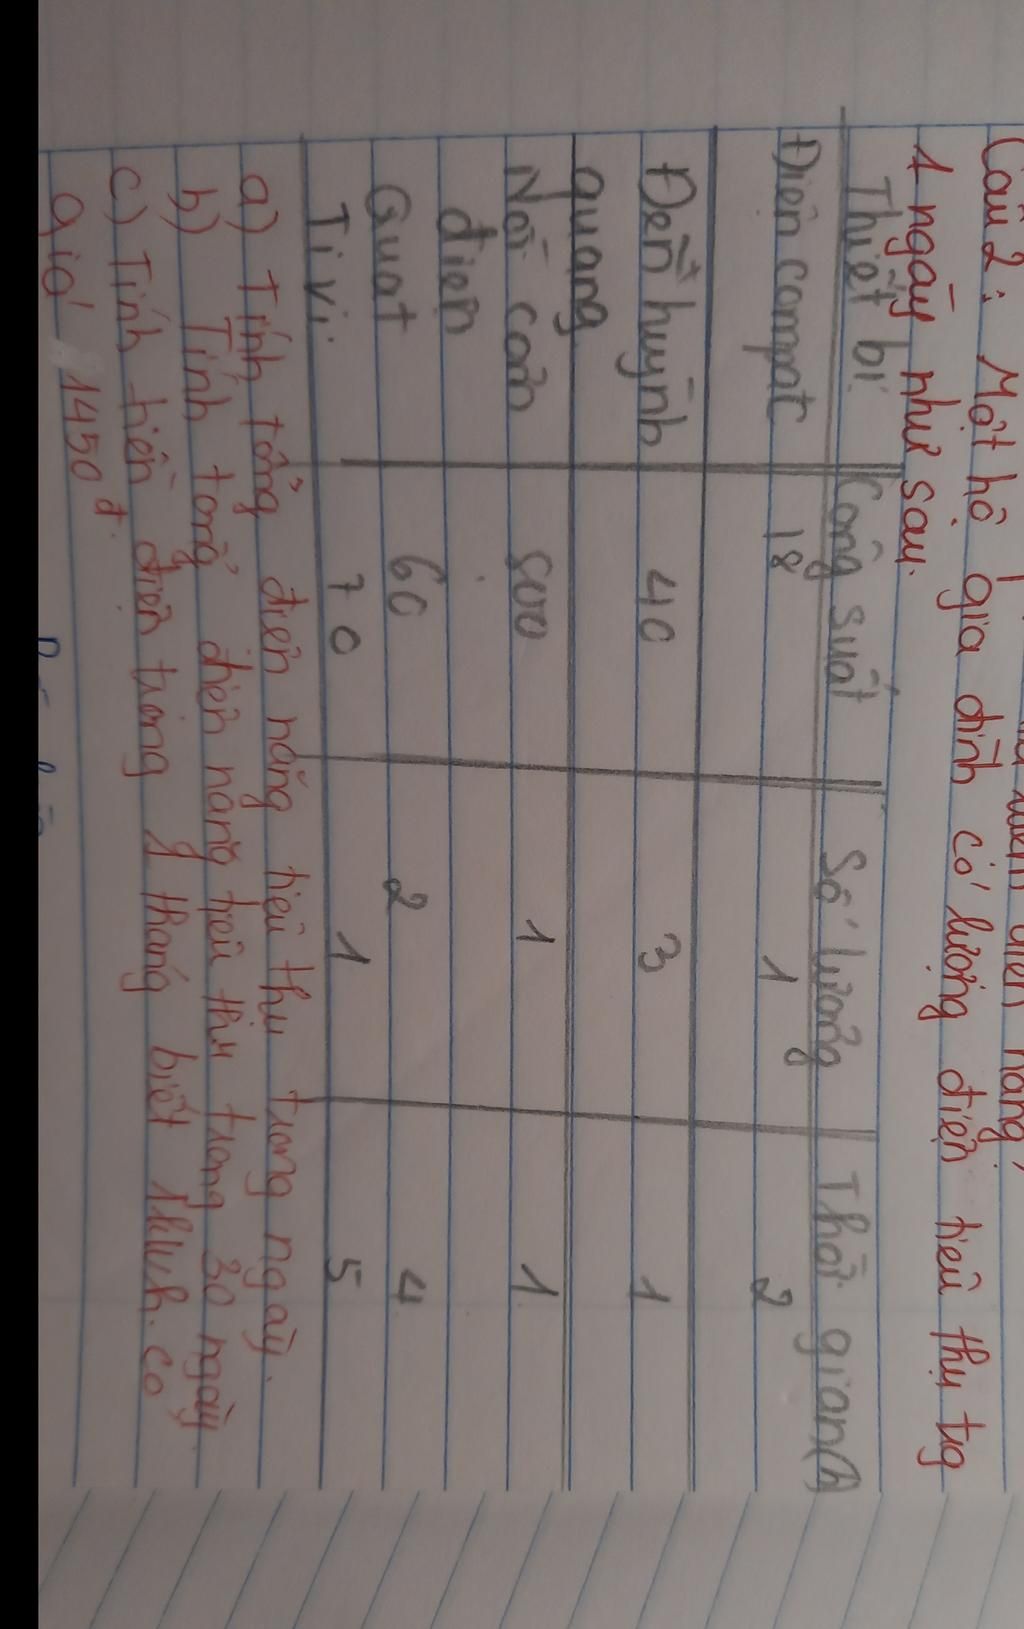 Câu 2: Một hộ gia đình có lượng điện tiêu thụ trg
1 ngày như sau.
Thiết bị Công suất Số lượng Thời gian (h)
Điện compat 18 1 2
Đèn huỳnh 40 3 1
quang
Nồi cơm 500 1 1
điện
Quạt 60 2 4
Ti vi. 70 1 5
a) Tính tổng điện năng tiêu thụ trong ngày.
b) Tính tổng điện năng tiêu thụ trong 30 ngày.
c) Tính tiền điện trong 1 tháng biết 1kwh. có
giá 1450 đ.